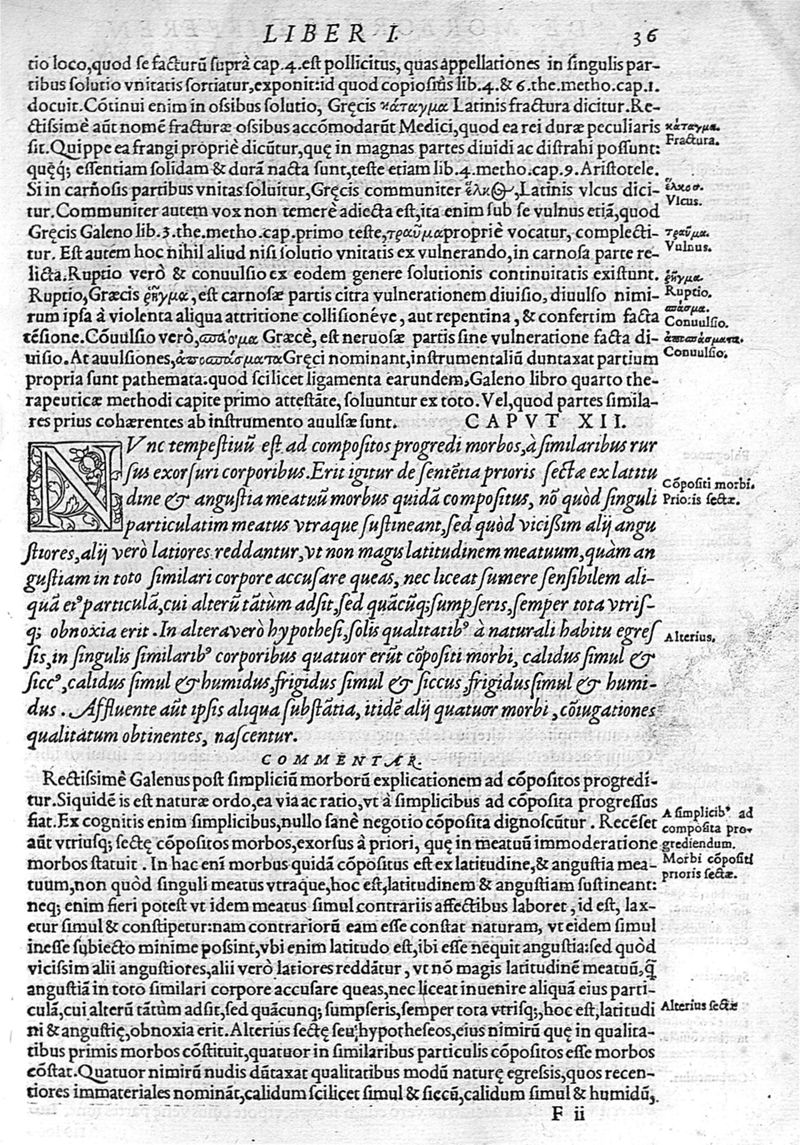 LIBER I. 36
tio loco, quod se facturũ suprà cap. 4. est pollicitus, quas appellationes in singulis par-
tibus solutio vnitatis sortiatur, exponit: id quod copiosiùs lib. 4. & 6. the. metho. cap. 1.
docuit. Cõtinui enim in ossibus solutio, Gręcis κάταγμα Latinis fractura dicitur. Re-
ctissimè aũt nomẽ fracturæ ossibus accõmodarũt Medici, quod ea rei duræ peculiaris
κάταγμα.
Fractura.
sit. Quippe ea frangi propriè dicũtur, quę in magnas partes diuidi ac distrahi possunt:
quęq; essentiam solidam & durã nacta sunt, teste etiam lib. 4. metho. cap. 9. Aristotele.
Si in carñosis partibus vnitas soluitur, Gręcis communiter ἕλκος, Latinis vlcus dici-
ἕλκοσ.
Vlcus.
tur. Communiter autem vox non temerè adiecta est, ita enim sub se vulnus etiã, quod
Gręcis Galeno lib. 3. the. metho. cap. primo teste, τραῦμα propriè vocatur, complecti-
τραῦμα.
Vulnus.
tur. Est autem hoc nihil aliud nisi solutio vnitatis ex vulnerando, in carnosa parte re-
licta. Ruptio verò & conuulsio ex eodem genere solutionis continuitatis existunt.
ῥῆγμα.
Ruptio.
Ruptio, Græcis ῥῆγμα, est carnosæ partis citra vulnerationem diuisio, diuulso nimi-
rum ipsa à violenta aliqua attritione collisionéve, aut repentina, & confertim facta
σπάσμα.
Conuulsio.
tẽsione. Cõuulsio verò, σπάσμα Græcè, est neruosæ partis sine vulneratione facta di-
uisio. At auulsiones, ἀποσπάσματα Gręci nominant, instrumentaliũ duntaxat partium
ἀποσπάσματα.
Conuulsio.
propria sunt pathemata: quod scilicet ligamenta earundem, Galeno libro quarto the-
rapeuticæ methodi capite primo attestãte, soluuntur ex toto. Vel, quod partes simila-
res prius cohærentes ab instrumento auulsæ sunt. CAPVT XII.
NVnc tempestiuũ est ad compositos progredi morbos, à similaribus rur
sus exorsuri corporibus. Erit igitur de sentẽtia prioris sectæ ex latitu
Cõpositi morbi.
Prioris sectæ.
dine & angustia meatuũ morbus quidã compositus, nõ quòd singuli
particulatim meatus vtraque sustineant, sed quòd vicißim alij angu
stiores, alij verò latiores reddantur, vt non magis latitudinem meatuum, quàm an
gustiam in toto similari corpore accusare queas, nec liceat sumere sensibilem ali-
quã eiꝰ particulã, cui alterũ tãtùm adsit, sed quãcũq; sumpseris, semper tota vtris-
q; obnoxia erit. In altera verò hypothesi, solis qualitatibꝰ à naturali habitu egres
Alterius.
sis, in singulis similaribꝰ corporibus quatuor erũt cõpositi morbi, calidus simul &
siccꝰ, calidus simul & humidus, frigidus simul & siccus, frigidus simul & humi-
dus. Affluente aũt ipsis aliqua substãtia, itidẽ alij quatuor morbi, cõiugationes
qualitatum obtinentes, nascentur.
COMMENTAR.
Rectissimè Galenus post simpliciũ morborũ explicationem ad cõpositos progredi-
tur. Siquidẽ is est naturæ ordo, ea via ac ratio, vt à simplicibus ad cõposita progressus
fiat. Ex cognitis enim simplicibus, nullo sanè negotio cõposita dignoscũtur. Recẽset
A simplicibꝰ ad
composita pro-
grediendum.
aũt vtriusq; sectę cõpositos morbos, exorsus à priori, quę in meatuũ immoderatione
morbos statuit. In hac enĩ morbus quidã cõpositus est ex latitudine, & angustia mea-
Morbi cõpositi
prioris sectæ.
tuum, non quòd singuli meatus vtraque, hoc est, latitudinem & angustiam sustineant:
neq; enim fieri potest vt idem meatus simul contrariis affectibus laboret, id est, lax-
etur simul & constipetur: nam contrariorũ eam esse constat naturam, vt eidem simul
inesse subiecto minimè possint, vbi enim latitudo est, ibi esse nequit angustia: sed quòd
vicissim alii angustiores, alii verò latiores reddãtur, vt nõ magis latitudinẽ meatuũ, q̃
angustiã in toto similari corpore accusare queas, nec liceat inuenire aliquã eius parti-
culã, cui alterũ tãtùm adsit, sed quãcunq; sumpseris, semper tota vtrisq;, hoc est, latitudi
ni & angustię, obnoxia erit. Alterius sectę seu hypotheseos, eius nimirũ quę in qualita-
Alterius sectæ
tibus primis morbos cõstituit, quatuor in similaribus particulis cõpositos esse morbos
cõstat. Quatuor nimirũ nudis dũtaxat qualitatibus modũ naturę egressis, quos recen-
tiores immateriales nominãt, calidum scilicet simul & siccũ, calidum simul & humidũ,
F ii